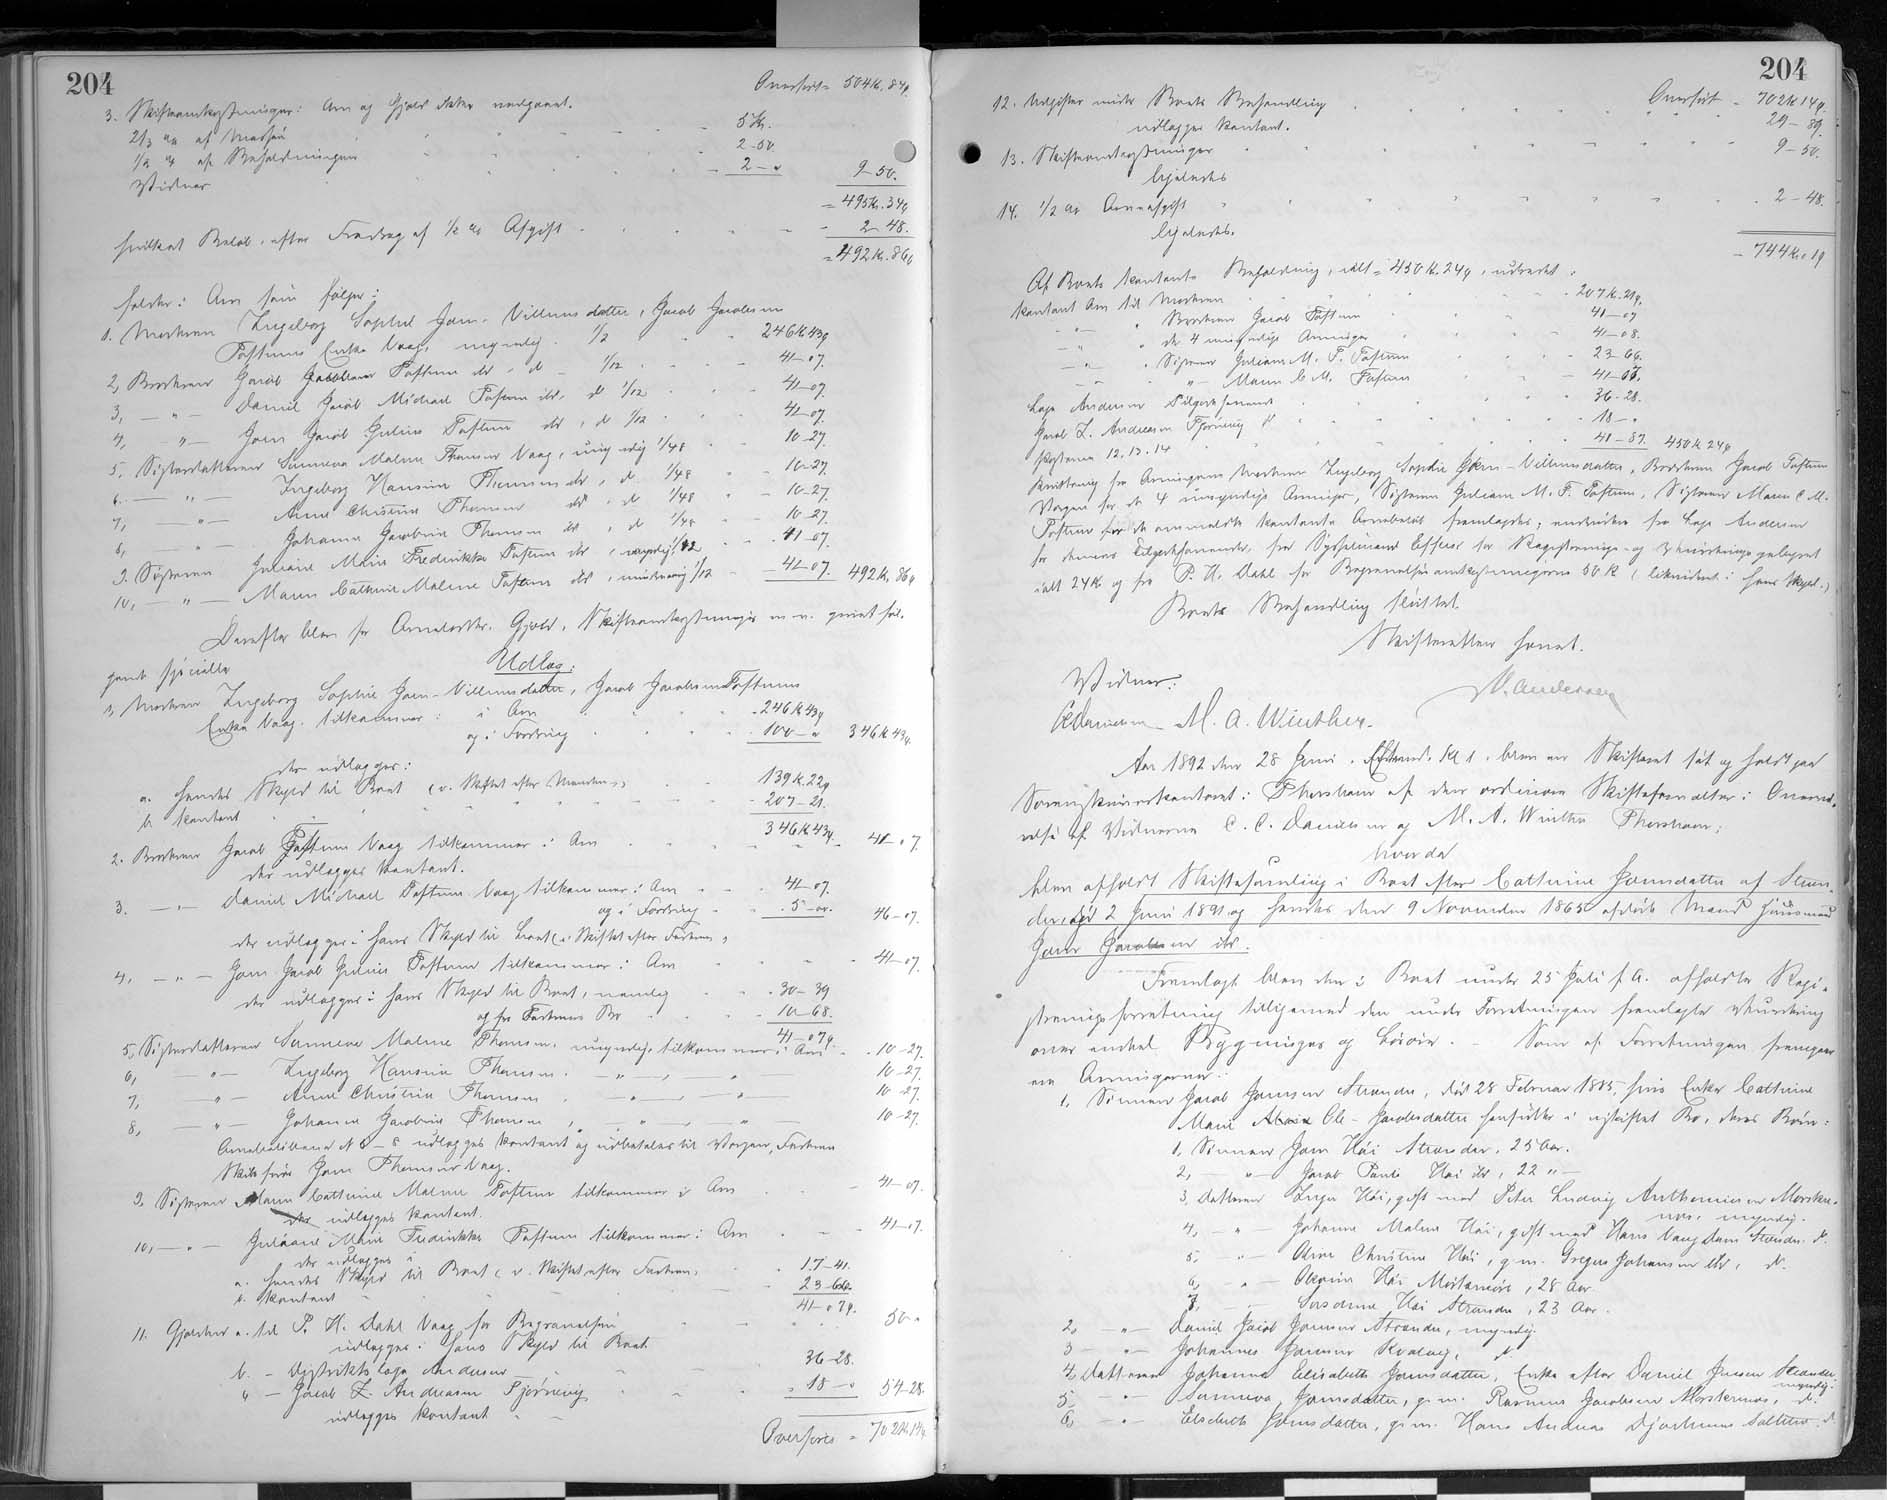 204
Overført = 504 Kr. 84 ø
3. Skifteomkostninger: Arv og Gjæld ikke vedgaaet.
2/3 % af Massen 5 Kr.
1/2 % af Beholdningen 2-50.
Vidner 2 - " 9-50.
= 495 Kr. 34 ø
hvilket Beløb, efter Fradrag af 1/2 % Afgift - 2-48.
= 492 Kr. 86 ø
falder i Arv som følger:
1. Moderen Ingeborg Sophie Joen-Villumsdatter, Jacob Jacobsen
Toftums Enke Vaag, myndig. 1/2 246 Kr 43 ø
2, Broderen Jacob Jacobsen Toftum ibd, d 1/12 41-07.
3, - " - Daniel Jacob Michael Toftum ibd, d 1/12 41-07.
4, " - Joen Jacob Julius Toftum ibd, d 1/12 41-07.
5. Søsterdatteren Sunneva Malene Thomsen Vaag, umyndig 1/48 10-27.
6. - " - Ingeborg Hansine Thomsen ibd, d 1/48 10-27.
7, - " - Anne Christine Thomsen ibd, d 1/48 10-27.
8, - " - Johanne Jacobine Thomsen ibd, d 1/48 10-27.
9. Søsteren Juliane Marie Fredrikke Toftum ibd, myndig 1/12 41-07.
10, - " - Maren Cathrine Malene Toftum ibd, mindreaarig 1/12 41-07. 492 Kr. 86 ø
Derefter blev for Arvelodder, Gjæld, Skifteomkostninger m.v. gjort føl-
gende specielle
Udlæg:
1, Moderen Ingeborg Sophie Joen-Villumsdatter, Jacob Jacobsen Toftums
Enke Vaag, tilkommer: i Arv 246 Kr 43 ø
og i Fordring 100 - " 346 Kr 43 ø.
der udlægges:
a. hendes Skyld til Boet (v. Skiftet efter Manden) 139 Kr. 22 ø
b kontant 207-21.
346 Kr 43 ø.
2. Broderen Jacob Toftum Vaag tilkommer i Arv 41-07.
der udlægges kontant.
3. - " - Daniel Michael Toftum Vaag tilkommer i Arv 41-07.
og i Fordring 5-00. 46-07.
der udlægges i hans Skyld til Boet (v. Skiftet efter Faderen)
4, - " - Joen Jacob Julius Toftum tilkommer i Arv 41-07.
der udlægges i hans Skyld til Boet, nemlig 30-39
og fra Faderens Bo 10-68.
41-07 ø.
5, Søsterdatteren Sunneva Malene Thomsen, umyndig, tilkommer i Arv 10-27.
6, - " - Ingeborg Hansine Thomsen - " - - " - 10-27.
7, - " - Anne Christine Thomsen - " - - " - 10-27.
8, - " - Johanne Jacobine Thomsen, - " - - " - 10-27.
Arvebeløbene N 5-8 udlægges kontant og udbetales til Værgen, Faderen
Joen Thomsen Vaag.
9. Søsteren Maren Cathrine Malene Toftum tilkommer i Arv 41-07.
der udlægges kontant.
10, - " - Juliane Marie Fredrikke Toftum tilkommer i Arv 41-07.
der udlægges i
a. hendes Skyld til Boet (v. Skiftet efter Faderen) 17-41.
b. kontant 23-66.
41-07 ø.
11. Gjælden a. til P. H. Dahl Vaag for Begravelsen 50 "
udlægges i hans Skyld til Boet.
b. - Distriktslæge Andersen 36-28.
c - Jacob Z. Andreasen 18 - " 54-28.
udlægges kontant
Overføres = 702 Kr. 14 ø

204
Overført - 702 Kr 14 ø.
12. Udgifter under Boets Behandling 29-89.
udlægges kontant.
13. Skifteomkostninger 9-50.
ligeledes
14. 1/2 % Arveafgift 2-48.
ligeledes.
- 744 Kr. 01
Af Boets kontante Beholdning, ialt = 450 Kr. 24 ø, udredes:
kontant Arv til Moderen 207 Kr. 21 ø.
- " - " Broderen Jacob Toftum 41-07
- " - " de 4 umyndige Arvinger 41-08.
- " - " Søsteren Juliane M. F. Toftum 23-66.
- " - " - Maren C M. Toftum 41-07.
Læge Andersens Tilgodehavende 36-28.
Jacob Z. Andreasen d 18 - "
Posterne 12, 13, 14 41-87. 450 Kr 24 ø
Kvittering fra Arvingerne Moderen Ingeborg Sophie Joen-Villumsdatter, Broderen Jacob Toftum
Værgen for de 4 umyndige Arvinger, Søsteren Juliane M. F. Toftum, Søsteren Maren C M.
Toftum for de anmeldte kontante Arvebeløb fremlagdes; endvidere fra Læge Andersen
for dennes Tilgodehavende, fra Sysselmand Effersø for Registrerings- og Vurderingsgebyret
ialt 24 Kr og fra P. H. Dahl for Begravelsesomkostningerne 50 Kr (likvideret i hans Skyld.)
Boets Behandling sluttet.
Skifteretten hævet.
Vidner:
CCDanielsen M. A. Winther.
Andersen
Aar 1892 den 28 Juni, Efterm. Kl 1, blev en Skifteret sat og holdt paa
Sorenskriverkontoret i Thorshavn af den ordinære Skifteforvalter i Overvæ-
relse af Vidnerne C. C. Danielsen og M. A. Winther Thorshavn;
hvorda
blev afholdt Skiftesamling i Boet efter Cathrine Joensdatter af Stran-
der, død 2 Juni 1891 og hendes den 9 November 1865 afdøde Mand Huusmand
Joen Jacobsen ibd.
Fremlagt blev den i Boet under 25 Juli f. A. afholdte Regi-
streringsforretning tilligemed den under Forretningen fremlagte Vurdering
over endel Bygninger og Løsøre. - Som af Forretningen fremgaar
ere Arvingerne:
1. Sønnen Jacob Joensen Strander, død 28 Februar 1885, hvis Enke Cathrine
Marie Ole-Jacobsdatter hensidder i uskiftet Bo, deres Børn:
1, Sønnen Joen Høi Strander, 25 Aar.
2, - " - Jacob Pauli Høi ibd, 22 " -
3, Datteren Inger Høi, gift med Peter Ludvig Anthoniussen Morsker-
næs, myndig.
4, - " - Johanne Malene Høi, gift med Hans Vang Dam Strander. d.
5. - " - Anne Christine Høi, g. m. Gregers Johansen ibd, d.
6, - " - Høi, 28 Aar
7, - " - Høi Strander, 23 Aar.
2, - " - Daniel Jacob Joensen Strander, myndig.
3 - " - Johannes Joensen Kvalvig, d.
4 Datteren Johanne Elisabeth Joensdatter, Enke efter Daniel Jensen Strander,
myndig.
5, - " - Sunneva Joensdatter, g. m. Rasmus Jacobsen Morskernæs, d.
6, - " - Elsebeth Joensdatter, g. m. Hans Andreas Djurhuus Saltnes. d.